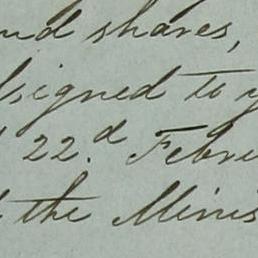 and shares,
signed to y
22.d Febru
the Minis